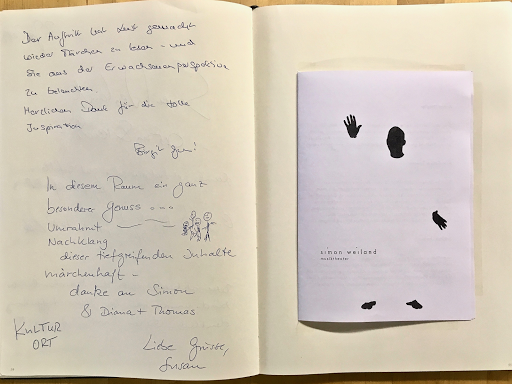 Der Auftritt hat Lust gemacht
wieder Märchen zu lesen - und
sie aus der Erwachsenenperspektive
zu beleuchten.
Herzlichen Dank für die tolle
Inspiration
Birgit
In diesem Raum ein ganz
besonderer Genuss ...
Umrahmt
Nachklang
dieser tiefgreifenden Inhalte
märchenhaft -
danke an Simon
& Diana + Thomas
KULTUR
ORT
Liebe Grüsse,
Susan
simon weiland
musiktheater